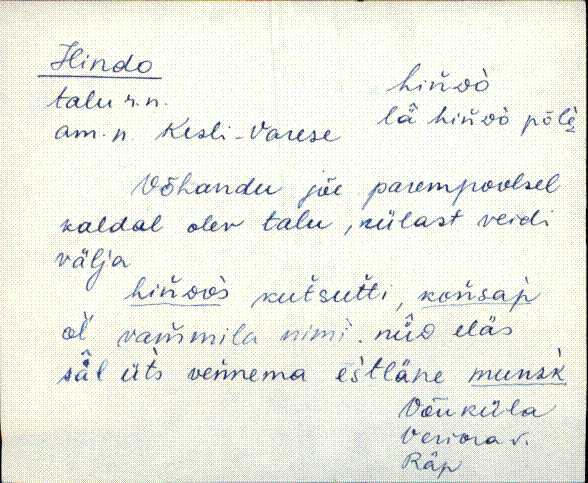 Hindo
talu r.n.
am.n. Kesli-Varese
hińdò
lä̂ hińdò põlè
Võhandu jõe parempoolsel
kaldal olev talu, külast veidi
välja
hińdòs kutsutti, końsap
ol̀ vam̆mila nimì. nüö eläs
sä̂l üt́s veńnema eśtläne munsḱ
Võuküla
Veriora v.
Räp